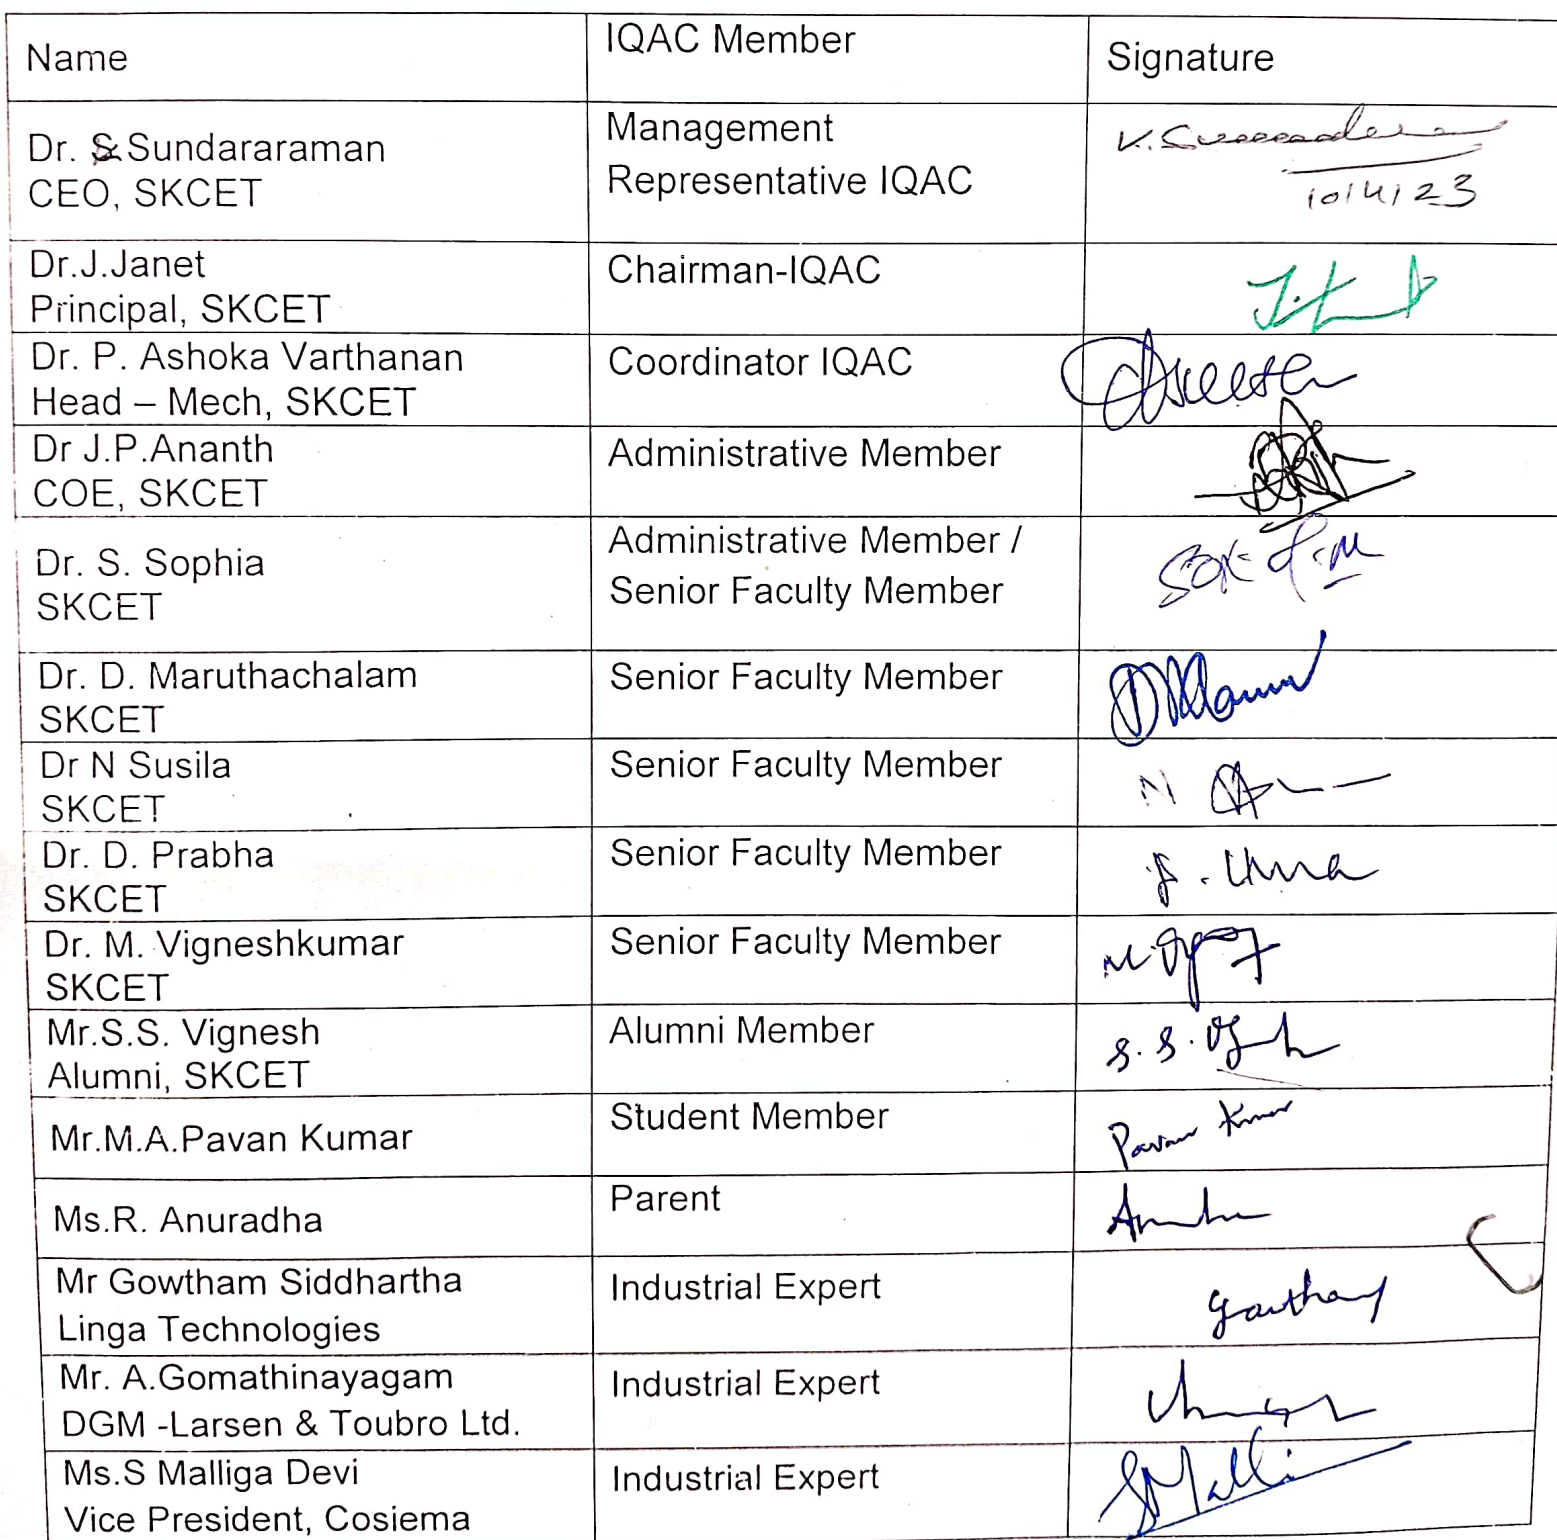 Name
IQAC Member
Signature
Dr. S Sundararaman
CEO, SKCET
Management
Representative IQAC
10/4/23
Dr.J.Janet
Principal, SKCET
Chairman-IQAC
Dr. P. Ashoka Varthanan
Head – Mech, SKCET
Coordinator IQAC
Dr J.P.Ananth
COE, SKCET
Administrative Member
Dr. S. Sophia
SKCET
Administrative Member /
Senior Faculty Member
Dr. D. Maruthachalam
SKCET
Senior Faculty Member
Dr N Susila
SKCET
Senior Faculty Member
N
Dr. D. Prabha
SKCET
Senior Faculty Member
Dr. M. Vigneshkumar
SKCET
Senior Faculty Member
Mr.S.S. Vignesh
Alumni, SKCET
Alumni Member
S.S.
Mr.M.A.Pavan Kumar
Student Member
Pavan Kumar
Ms.R. Anuradha
Parent
Mr Gowtham Siddhartha
Linga Technologies
Industrial Expert
Mr. A.Gomathinayagam
DGM -Larsen & Toubro Ltd.
Industrial Expert
Ms.S Malliga Devi
Vice President, Cosiema
Industrial Expert